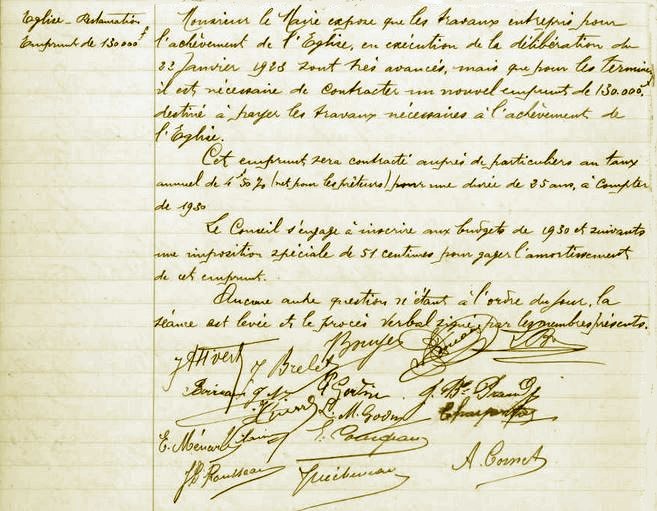 Eglise - Restauration
Emprunt de 130.000f
Monsieur le Maire expose que les travaux entrepris pour
l'achèvement de l'Eglise, en exécution de la délibération du
22 Janvier 1928 sont très avancés, mais que pour les terminer
il est nécessaire de contracter un nouvel emprunt de 130.000f.
destiné à payer les travaux nécessaires à l'achèvement de
l'Eglise.
Cet emprunt sera contracté auprès de particuliers au taux
annuel de 4f50% (net pour les prêteurs) pour une durée de 25 ans, à compter
de 1930
Le Conseil s'engage à inscrire aux budgets de 1930 et suivants
une imposition spéciale de 51 centimes pour gager l'amortissement
de cet emprunt.
Aucune autre question n'étant à l'ordre du jour, la
séance est levée et le procès verbal signé par les membres présents.
J Brelet
L. M. Godin
E. Ménard
JB Rousseau
A. Cornet